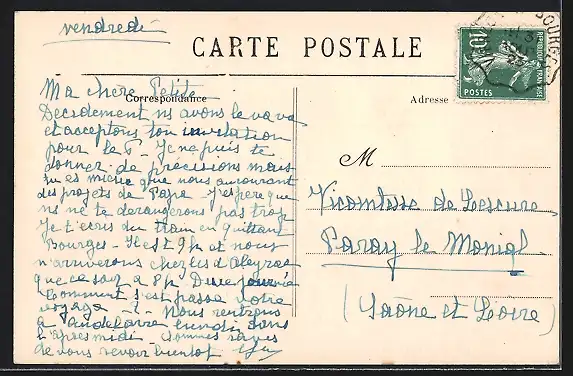 vendredi
CARTE POSTALE
Correspondance
Adresse
Ma chère Petite
Decidement ns avons le vava
et acceptons ton invitation
pour le P - Je ne puis te
donner de précisions mais
tu es mieux que nous au courant
des projets de Papa - J'espère que
ns ne te derangerons pas trop
Je t'ecris du train en quittant
Bourges - Il est 9h et nous
n'arriverons chez les d'Aleyrac
que ce soir à 8h
Comment s'est passé votre
voyage -?- Nous rentrons
à lundi dans
l'après midi - Sommes ravis
de vous revoir bientot
M
Vicomtesse de Lescure
Paray le Monial
(Saône et Loire)
BOURGES
10c
REPUBLIQUE FRANÇAISE
POSTES